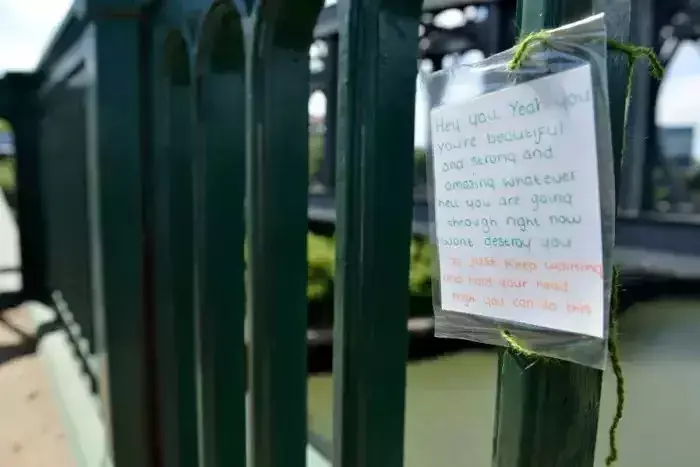 Hey you Yeah you
you're beautiful
and strong and
amazing whatever
hell you are going
through right now
wont destroy you
so just keep walking
and hold your head
high you can do this